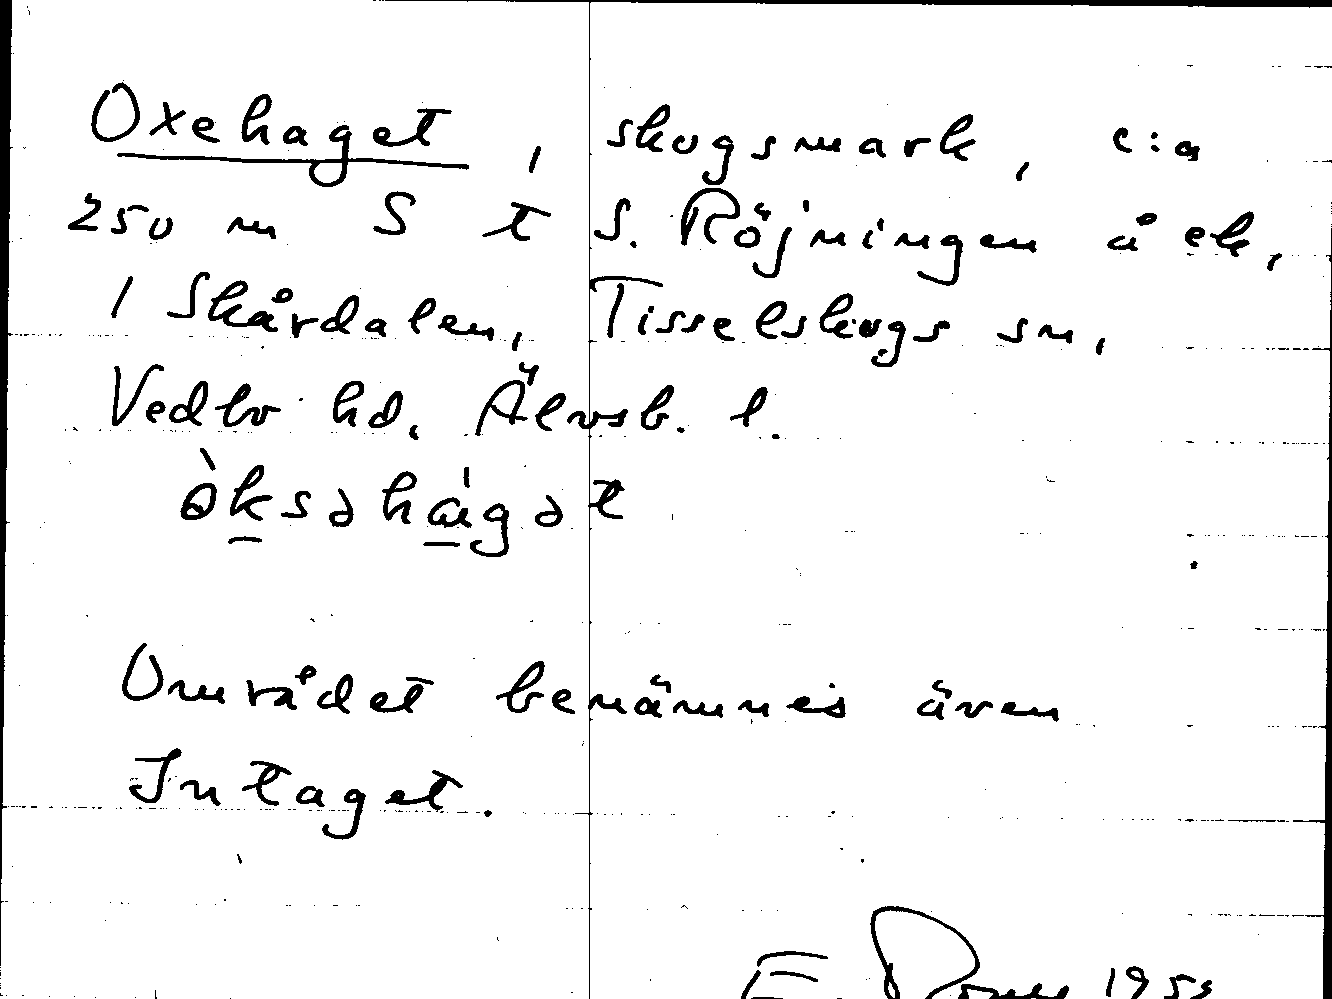 Oxehaget, skogsmark, c:a
250 m S t S. Röjningen å ek,
1 Skårdalen, Tisselskogs sn,
Vedbo hd. Älvsb. l.
òksəhágət
Området benämnes även
Intaget.
E. 195